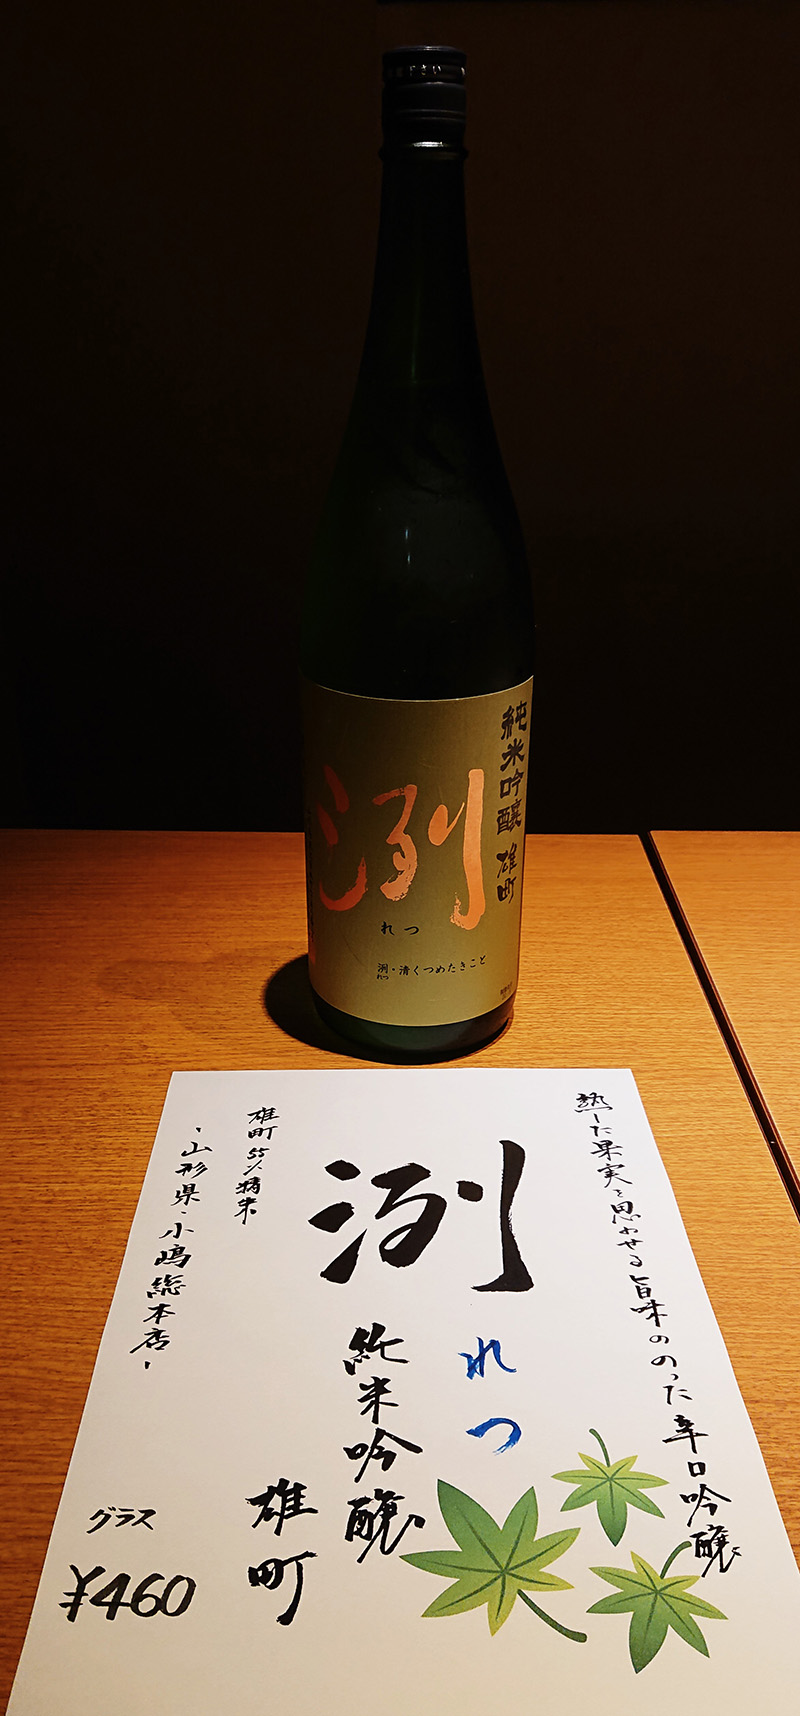 純米吟醸 雄町
洌
れつ
洌・清くつめたきこと
れつ
熟した果実を思わせる旨味ののった辛口吟醸
洌
れつ
純米吟醸
雄町
雄町55%精米
-山形県・小嶋総本店-
グラス
¥460